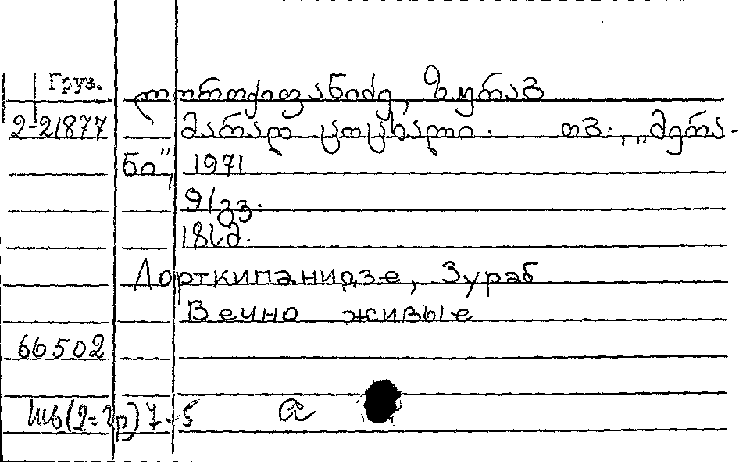 Груз.
ლორთქიფანიძე, ზურაბ
2-21877 მარად ცოცხალი. თბ., „მერა-
ნი", 1971
91გვ.
18სმ.
Лорткипанидзе, Зураб
Вечно живые
66502
Шв(2=Гр)7-5 а